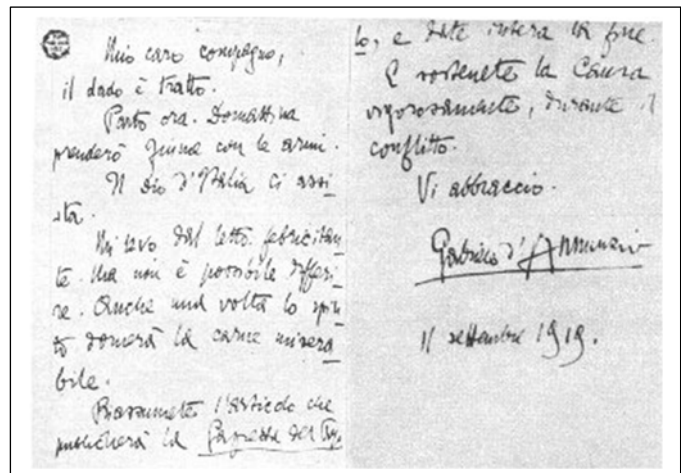 Mio caro compagno,
il dado è tratto.
Parto ora. Domattina
prenderò Fiume con le armi.
Il Dio d'Italia ci assi-
sta.
Mi levo dal letto febricitan-
te. Ma non è possibile differi-
re. Anche una volta lo spiri-
to domerà la carne misera-
bile.
Riassumete l'articolo che
pubblicherà la Gazzetta del Popo-
lo, e date intera la fine.
E sostenete la Causa
vigorosamente, durante il
conflitto.
Vi abbraccio.
Gabriele d'Annunzio
11 settembre 1919.